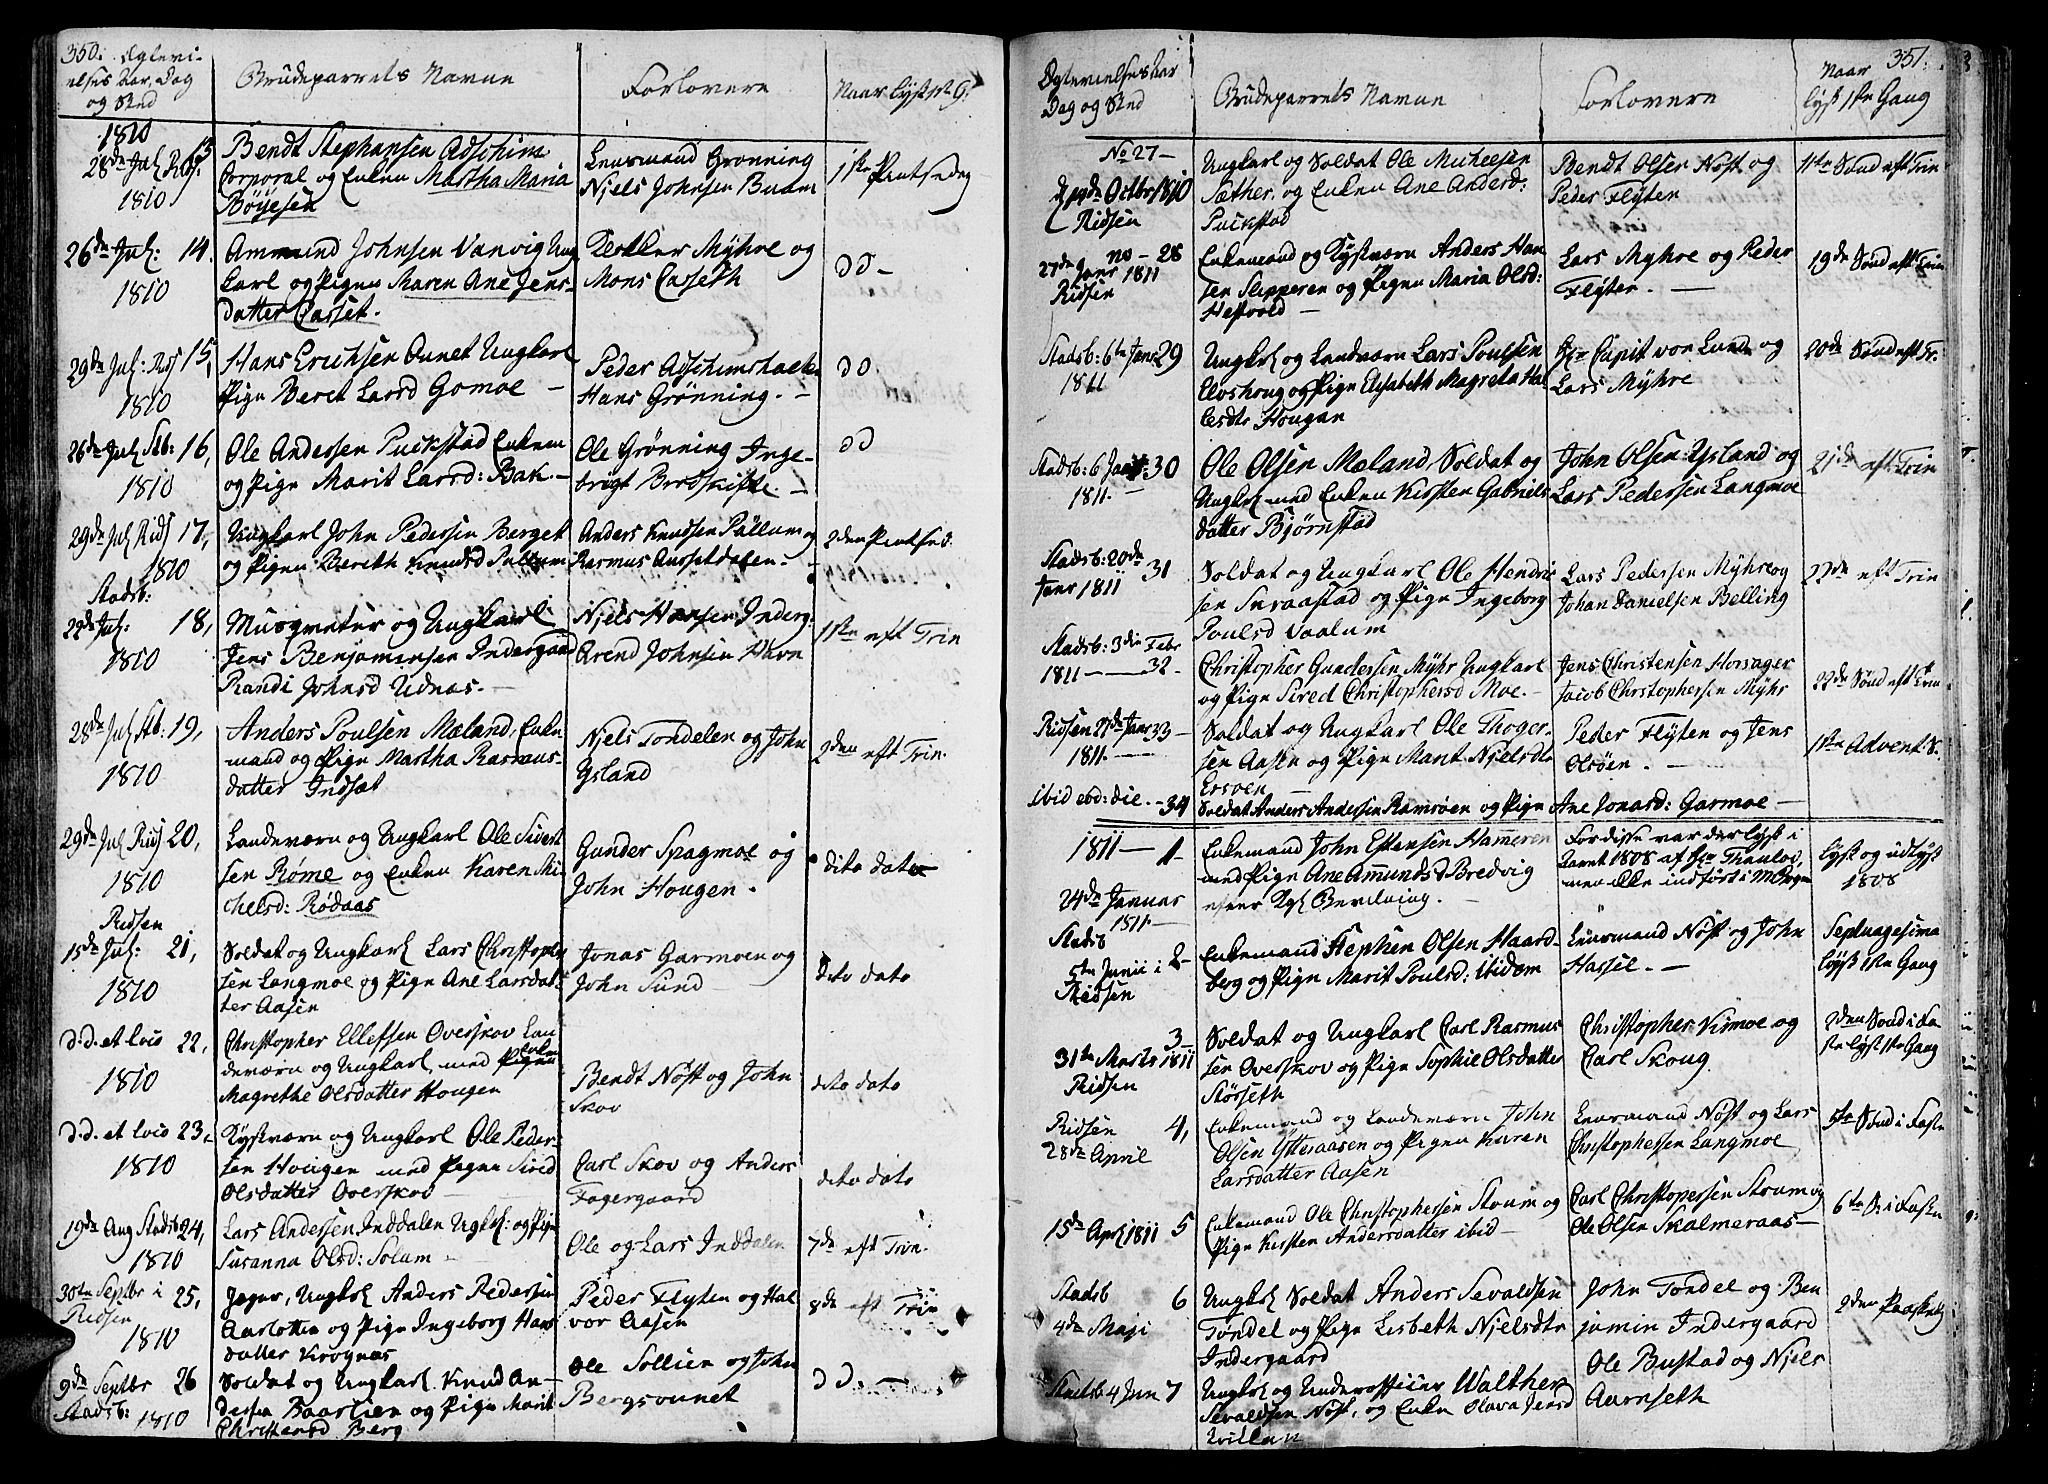 350.
Ægtevi-
elses Aar, Dag
og Sted
Brudeparrets Navne
Forlovere
Naar lyst 1ste G:
1810
28de Jul Rids: 13
1810
Bendt Stephansen Adschim
Corporal og Enken Martha Maria
Böyesen
Lensmand Grønning
Niels Johnsen Buam
1ste Pintsedag
26de Jul: 14.
1810
Ammund Johnsen Vanvig Ung
Carl og Pigen Maren Ane Jens-
datter Casset.
Myhre og
Mons Casseth
dd -
29de Jul: Rids 15,
1810
Hans Erichsen Qvnet Ungkarl
Pige Beret Larsd Gomoe -
Peder Adschimshalten
Hans Grønning. -
dd.
26de Jul Stb: 16,
1810
Ole Andersen Puckstad Enkem
og Pige Marit Larsd: Bak -
Ole Grønning Inge-
brigt Brodskifte. -
dd
29de Jul Rids 17,
1810
Ungkarl John Pedersen Berget
og Pigen Berith Knudsd Pullum
Anders Knudsen Püllum og
Rasmus Aussetdalen. -
2den Pintsed:
Stadsb:
22de Jul: 18,
1810
Musqueteur og Ungkarl
Jens Benjaminsen Indergaard
Randi Johnsd Udnæs. -
Niels Hansen Inderg:
Arend Johnsen Havn
1ste eft Trin
28de Jul Stb: 19,
1810
Anders Poulsen Mæland, Enke
mand og Pige Martha Rasmus-
datter Indsæt
Niels Tondelen og John
Ysland
2den eft Trin.
29de Jul Rids 20,
1810
Landeværn og Ungkarl Ole Sivert
sen Røme og Enken Karen Mi-
chelsd: Rødaas
Gunder Spagmoe og
John Hougen.
dito dato
Ridsen
15de Jul: 21,
1810
Soldat og Ungkarl Lars Christoph
sen Langmoe og Pige Ane Larsdat-
ter Aasen
Jonas Garmoen og
John Sund -
dito dato
d.d. et loco 22,
1810
Christopher Ellefsen Overskov Lan
deværn og Ungkarl med Pigen Enken
Magrethe Olsdatter Hougen
Bendt Nöst og John
Skov
dito dato
d.d. et loco 23,
1810
Kystværn og Ungkarl Ole Peder-
sen Hougen med Pigen Sirid
Olsdatter Overskov -
Carl Skov og Anders
Fagergaard
dito dato
19de Aug Stadsb 24,
1810
Lars Andersen Inddalen Ugkl: og Pige
Susanna Olsd: Solum -
Ole og Lars Inddalen
7de eft Trin.
30te Septbr i 25,
Ridsen
1810
Jæger, Ungkrl Anders Pedersen
Aarlotten og Pige Ingeborg Hans
datter Krognæs
Peder Flyten og Hal
vor Aasen
8de eft Trin
9de Septbr 26
Stadsb: 1810
Soldat og Ungkarl Knud An-
dersen Baarlien og Pige Marit
Christensd Berg
Ole Sollien og John
Bergsvunet
dd. -
351.
Ægtevielses Aar
Dag og Sted
Brudeparrets Navne
Forlovere
Naar
lyst 1ste Gang
No 27 -
d. 14de Octbr 1810
Ridsen
Ungkarl og Soldat Ole Mickelsen
Sæther, og Enken Ane Anders:
Puckstad
Bendt Olsen Nöst og
Peder Flyten
11te Sønd eft Trin
no - 28
27de Janr 1811
Ridsen
Enkemand og Kystværn Anders Han
sen Slipperen og Pigen Maria Olsd:
Hestvold -
Lars Myhre og Peder
Flyten. -
19de Sønd eft Trin
Stadsb: 6te Janr 29
1811
Ungkrl og Landværn Lars Poulsen
Elvskoug og Pige Elisabeth Magreta Hal
lesdtr Hougan
Hr Capit von Lund og
Lars Myhre
20de Sønd eft Tr.
Stadsb: 6 Janr 30
1811. -
Ole Olsen Mæland Soldat og
Ungkrl med Enken Kirsten Gabriels
datter Bjørnstad
John Olsen Ysland og
Lars Pedersen Langmoe
21de eft Trin
Stadsb: 20de
Janr 1811 31
Soldat og Ungkarl Ole Hendric
sen Snraastad og Pige Ingeborg
Poulsd Vaalum
Lars Pedersen Myhre og
Johan Danielsen Belling
22de eft Trin
Stadsb: 3die Febr
1811 - 32 -
Christopher Gundersen Myhr Ungkarl
og Pige Sired Christophersd Moe -
Jens Christensen Horsager
Jacob Christophersen Myhr
22de Sønd eft Trin
Ridsen 27de Janr 33 -
1811. -
Soldat og Ungkarl Ole Thoger-
sen Aasen og Pige Marit Nielsdtr
Ersøen -
Peder Flyten og Jens
Olsøen. -
1ste Advent: S.
ibid eod: die. - 34
Soldat Anders Andersen Ramsøen og Pige Ane Jonasd: Garmoe -
1811 - 1 -
24de Januar
1811.
Enkemand John Estensen Hameren
med Pige Ane Amundsd Bredvig
efter Kgl Bevilning. -
For disse var der lyst i
Aaret 1808 af Hr Thaulov,
men ikke indført i M Bogen
lyst og udlyst
1808
Stadsb
5te Junii i 2 -
Ridsen
Enkemand Stephen Olsen Haard-
berg og Pige Marit Poulsd: ibidem
Lensmand Nöst og John
Hassel. -
Septuagesima
lyst 1ste Gang
3 -
31te Marts 1811
Ridsen
Soldat og Ungkarl Carl Rasmus
sen Overskov og Pige Sophie Olsdatter
Störseth
Christopher Kimoe og
Carl Skoug.
2den Sønd i Fa
ste lyst 1ste Gang
Ridsen 4,
28de April
Enkemand og Landeværn John
Olsen Ytteraasen og Pigen Karen
Larsdatter Aasen
Lensmand Nöst og Lars
Christophersen Langmoe
5te Sønd i Faste
15de Apr 1811 5
Enkemand Ole Christophersen Skoum og
Pige Kirsten Andersdatter ibid -
Carl Christopersen Skoum og
Ole Olsen Skalmeraas -
6te S: i Fasten
Stadsb 6
4de Maji
Ungkrl Soldat Anders Sevaldsen
Tøndel og Pige Lisbeth Nielsdtr
Indergaard
John Tøndel og Ben
jamin Indergaard
2den Paaskedg
Stadsb 4 Jun 7
Ungkrl og Underofficier Walther
Sevaldsen Nöst, og Enke Olava Jensd
Kvillan
Ole Bustad og Niels
Aarnseth